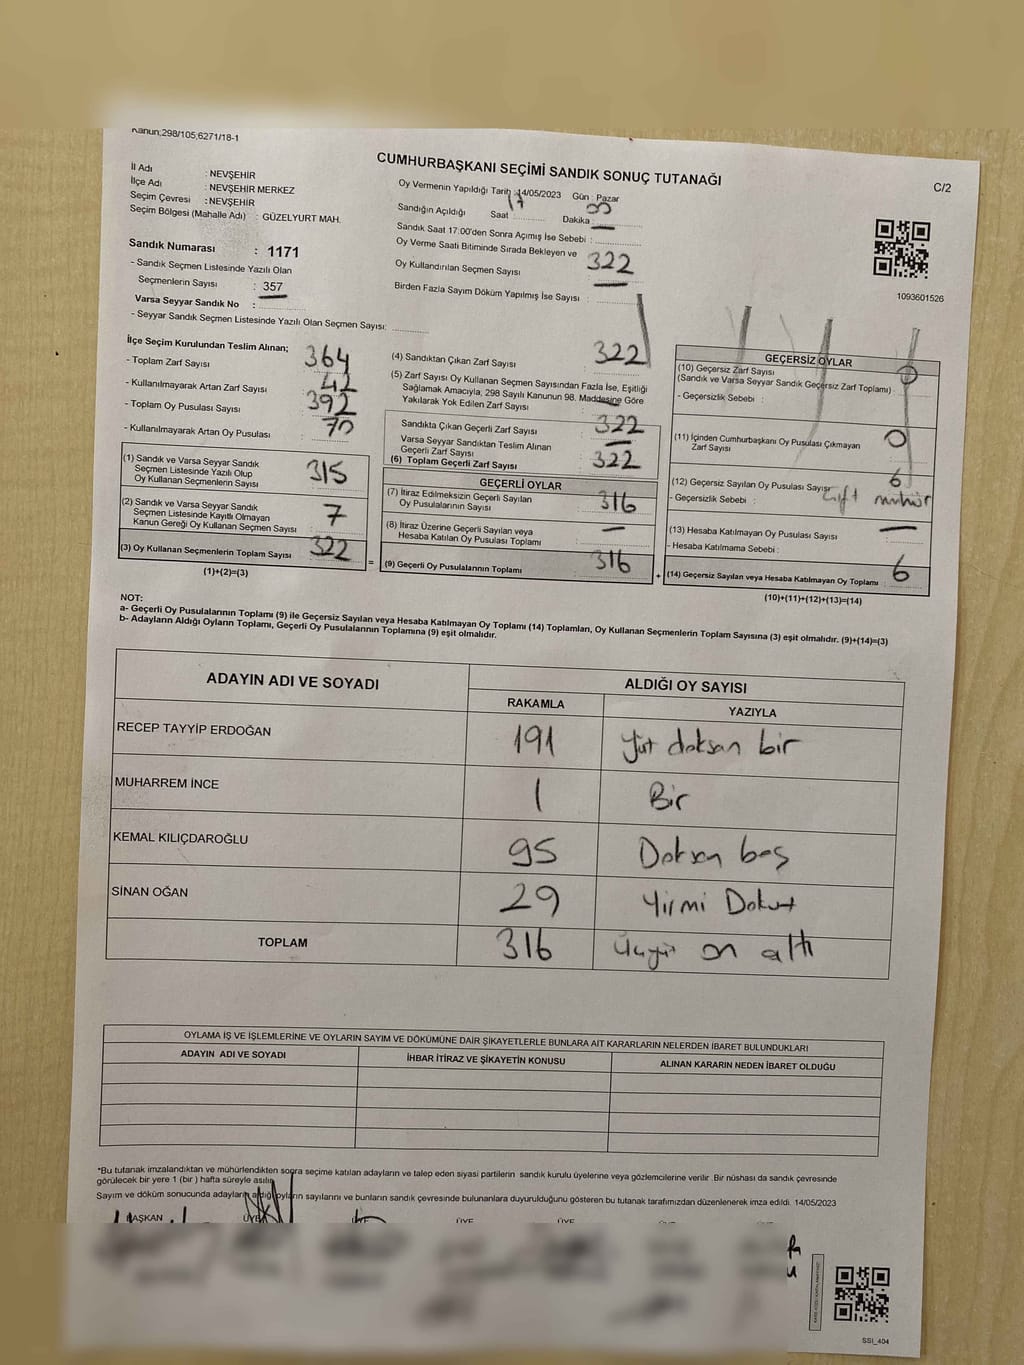 Kanun;298/105;6271/18-1
CUMHURBAŞKANI SEÇİMİ SANDIK SONUÇ TUTANAĞI
C/2
İl Adı : NEVŞEHİR
İlçe Adı : NEVŞEHİR MERKEZ
Seçim Çevresi : NEVŞEHİR
Seçim Bölgesi (Mahalle Adı) : GÜZELYURT MAH.
Sandık Numarası : 1171
- Sandık Seçmen Listesinde Yazılı Olan
Seçmenlerin Sayısı : 357
Varsa Seyyar Sandık No :
- Seyyar Sandık Seçmen Listesinde Yazılı Olan Seçmen Sayısı:
Oy Vermenin Yapıldığı Tarih :14/05/2023 Gün : Pazar
Sandığın Açıldığı Saat 17 Dakika 00
Sandık Saat 17:00'den Sonra Açımış İse Sebebi :
Oy Verme Saati Bitiminde Sırada Bekleyen ve
Oy Kullandırılan Seçmen Sayısı 322
Birden Fazla Sayım Döküm Yapılmış İse Sayısı :
1093601526
İlçe Seçim Kurulundan Teslim Alınan;
- Toplam Zarf Sayısı : 364
- Kullanılmayarak Artan Zarf Sayısı : 42
- Toplam Oy Pusulası Sayısı : 392
- Kullanılmayarak Artan Oy Pusulası : 70
(1) Sandık ve Varsa Seyyar Sandık
Seçmen Listesinde Yazılı Olup
Oy Kullanan Seçmenlerin Sayısı : 315
(2) Sandık ve Varsa Seyyar Sandık
Seçmen Listesinde Kayıtlı Olmayan
Kanun Gereği Oy Kullanan Seçmen Sayısı : 7
(3) Oy Kullanan Seçmenlerin Toplam Sayısı : 322
(1)+(2)=(3)
(4) Sandıktan Çıkan Zarf Sayısı : 322
(5) Zarf Sayısı Oy Kullanan Seçmen Sayısından Fazla İse, Eşitliği
Sağlamak Amacıyla, 298 Sayılı Kanunun 98. Maddesine Göre
Yakılarak Yok Edilen Zarf Sayısı
Sandıkta Çıkan Geçerli Zarf Sayısı : 322
Varsa Seyyar Sandıktan Teslim Alınan
Geçerli Zarf Sayısı
(6) Toplam Geçerli Zarf Sayısı : 322
GEÇERLİ OYLAR
(7) İtiraz Edilmeksizin Geçerli Sayılan
Oy Pusulalarının Sayısı : 316
(8) İtiraz Üzerine Geçerli Sayılan veya
Hesaba Katılan Oy Pusulası Toplamı : —
=
(9) Geçerli Oy Pusulalarının Toplamı : 316
GEÇERSİZ OYLAR
(10) Geçersiz Zarf Sayısı 0
(Sandık ve Varsa Seyyar Sandık Geçersiz Zarf Toplamı)
- Geçersizlik Sebebi :
(11) İçinden Cumhurbaşkanı Oy Pusulası Çıkmayan
Zarf Sayısı 0
(12) Geçersiz Sayılan Oy Pusulası Sayısı 6
- Geçersizlik Sebebi : Çift mühür
(13) Hesaba Katılmayan Oy Pusulası Sayısı : —
- Hesaba Katılmama Sebebi :
+
(14) Geçersiz Sayılan veya Hesaba Katılmayan Oy Toplamı : 6
(10)+(11)+(12)+(13)=(14)
NOT:
a- Geçerli Oy Pusulalarının Toplamı (9) ile Geçersiz Sayılan veya Hesaba Katılmayan Oy Toplamı (14) Toplamları, Oy Kullanan Seçmenlerin Toplam Sayısına (3) eşit olmalıdır. (9)+(14)=(3)
b- Adayların Aldığı Oyların Toplamı, Geçerli Oy Pusulalarının Toplamına (9) eşit olmalıdır.
ADAYIN ADI VE SOYADI ALDIĞI OY SAYISI
RAKAMLA YAZIYLA
RECEP TAYYİP ERDOĞAN 191 Yüz doksan bir
MUHARREM İNCE 1 Bir
KEMAL KILIÇDAROĞLU 95 Doksan beş
SİNAN OĞAN 29 Yirmi Dokuz
TOPLAM 316 Üçyüz on altı
OYLAMA İŞ VE İŞLEMLERİNE VE OYLARIN SAYIM VE DÖKÜMÜNE DAİR ŞİKAYETLERLE BUNLARA AİT KARARLARIN NELERDEN İBARET BULUNDUKLARI
ADAYIN ADI VE SOYADI İHBAR İTİRAZ VE ŞİKAYETİN KONUSU ALINAN KARARIN NEDEN İBARET OLDUĞU
*Bu tutanak imzalandıktan ve mühürlendikten sonra seçime katılan adayların ve talep eden siyasi partilerin sandık kurulu üyelerine veya gözlemcilerine verilir. Bir nüshası da sandık çevresinde
görülecek bir yere 1 (bir ) hafta süreyle asılır.
Sayım ve döküm sonucunda adayların aldığı oyların sayılarını ve bunların sandık çevresinde bulunanlara duyurulduğunu gösteren bu tutanak tarafımızdan düzenlenerek imza edildi. 14/05/2023
BAŞKAN ÜYE ÜYE ÜYE ÜYE
SSI_404